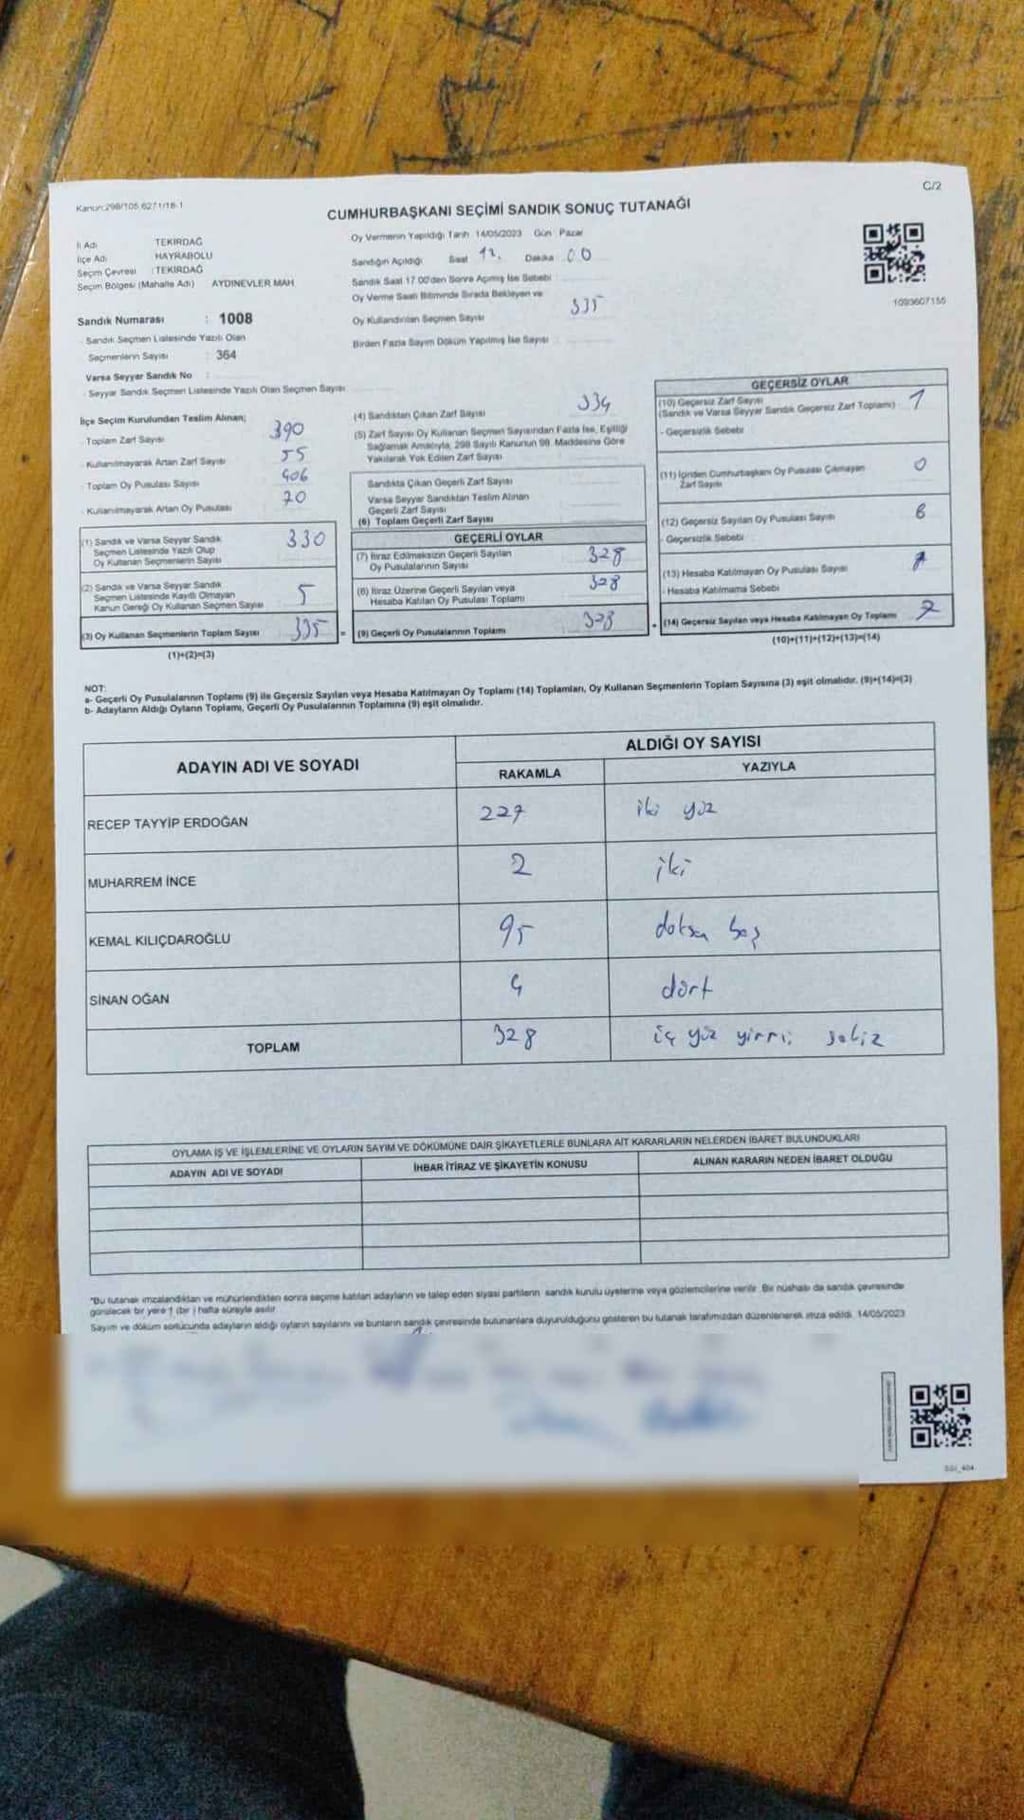 C/2
Kanun:298/105 6271/18-1
CUMHURBAŞKANI SEÇİMİ SANDIK SONUÇ TUTANAĞI
İl Adı TEKİRDAĞ
İlçe Adı HAYRABOLU
Seçim Çevresi : TEKİRDAĞ
Seçim Bölgesi (Mahalle Adı) AYDINEVLER MAH
Sandık Numarası : 1008
Sandık Seçmen Listesinde Yazılı Olan
Seçmenlerin Sayısı : 364
Varsa Seyyar Sandık No
Seyyar Sandık Seçmen Listesinde Yazılı Olan Seçmen Sayısı
Oy Vermenin Yapıldığı Tarih 14/05/2023 Gün : Pazar
Sandığın Açıldığı Saat Dakika 00
Sandık Saat 17.00'den Sonra Açılmış İse Sebebi
Oy Verme Saati Bitiminde Sırada Bekleyen ve
Oy Kullandırılan Seçmen Sayısı 335
Birden Fazla Sayım Döküm Yapılmış İse Sayısı
1093607155
İlçe Seçim Kurulundan Teslim Alınan;
Toplam Zarf Sayısı 390
Kullanılmayarak Artan Zarf Sayısı 55
Toplam Oy Pusulası Sayısı 406
Kullanılmayarak Artan Oy Pusulası 70
(1) Sandık ve Varsa Seyyar Sandık
Seçmen Listesinde Yazılı Olup
Oy Kullanan Seçmenlerin Sayısı 330
(2) Sandık ve Varsa Seyyar Sandık
Seçmen Listesinde Kayıtlı Olmayan
Kanun Gereği Oy Kullanan Seçmen Sayısı 5
(3) Oy Kullanan Seçmenlerin Toplam Sayısı 335 =
(1)+(2)=(3)
(4) Sandıktan Çıkan Zarf Sayısı 334
(5) Zarf Sayısı Oy Kullanan Seçmen Sayısından Fazla İse, Eşitliği
Sağlamak Amacıyla, 298 Sayılı Kanunun 98. Maddesine Göre
Yakılarak Yok Edilen Zarf Sayısı
Sandıkta Çıkan Geçerli Zarf Sayısı
Varsa Seyyar Sandıktan Teslim Alınan
Geçerli Zarf Sayısı
(6) Toplam Geçerli Zarf Sayısı
GEÇERLİ OYLAR
(7) İtiraz Edilmeksizin Geçerli Sayılan
Oy Pusulalarının Sayısı 328
(8) İtiraz Üzerine Geçerli Sayılan veya
Hesaba Katılan Oy Pusulası Toplamı 328
(9) Geçerli Oy Pusulalarının Toplamı 328
GEÇERSİZ OYLAR
(10) Geçersiz Zarf Sayısı 1
(Sandık ve Varsa Seyyar Sandık Geçersiz Zarf Toplamı)
- Geçersizlik Sebebi
(11) İçinden Cumhurbaşkanı Oy Pusulası Çıkmayan 0
Zarf Sayısı
(12) Geçersiz Sayılan Oy Pusulası Sayısı 6
- Geçersizlik Sebebi
(13) Hesaba Katılmayan Oy Pusulası Sayısı
- Hesaba Katılmama Sebebi
(14) Geçersiz Sayılan veya Hesaba Katılmayan Oy Toplamı 7
(10)+(11)+(12)+(13)=(14)
NOT:
a- Geçerli Oy Pusulalarının Toplamı (9) ile Geçersiz Sayılan veya Hesaba Katılmayan Oy Toplamı (14) Toplamları, Oy Kullanan Seçmenlerin Toplam Sayısına (3) eşit olmalıdır. (9)+(14)=(3)
b- Adayların Aldığı Oyların Toplamı, Geçerli Oy Pusulalarının Toplamına (9) eşit olmalıdır.
ADAYIN ADI VE SOYADI ALDIĞI OY SAYISI
RAKAMLA YAZIYLA
RECEP TAYYİP ERDOĞAN 227 iki yüz
MUHARREM İNCE 2 iki
KEMAL KILIÇDAROĞLU 95 doksa beş
SİNAN OĞAN 4 dört
TOPLAM 328 üç yüz yirmi sekiz
OYLAMA İŞ VE İŞLEMLERİNE VE OYLARIN SAYIM VE DÖKÜMÜNE DAİR ŞİKAYETLERLE BUNLARA AİT KARARLARIN NELERDEN İBARET BULUNDUKLARI
ADAYIN ADI VE SOYADI İHBAR İTİRAZ VE ŞİKAYETİN KONUSU ALINAN KARARIN NEDEN İBARET OLDUĞU
*Bu tutanak imzalandıktan ve mühürlendikten sonra seçime katılan adayların ve talep eden siyasi partilerin sandık kurulu üyelerine veya gözlemcilerine verilir. Bir nüshası da sandık çevresinde
görülecek bir yere 1 (bir) hafta süreyle asılır.
Sayım ve döküm sonucunda adayların aldığı oyların sayılarını ve bunların sandık çevresinde bulunanlara duyurulduğunu gösteren bu tutanak tarafımızdan düzenlenerek imza edildi. 14/05/2023